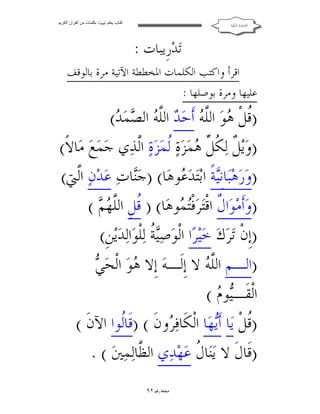 كتاب يعلم تبيوت بكلمات من القرآن الكريم
القاعدة المكية
تَدْرِيبات :
اقرأ واكتب الكلمات المخططة الآتية مرة بالوقف
عليها ومرة بوصلها :
(قُلْ هُوَ اللَّهُ أَحَدٌ اللَّهُ الصَّمَدُ)
(وَيْلٌ لِكُلِّ هُمَزَةٍ لُمَزَةٍ الَّذِي جَمَعَ مَالاً)
(وَرَهْبَانِيَّةً ابْتَدَعُوهَا) (جَنَّاتِ عَدْنٍ الَّتِي)
(وَأَمْوَالٌ اقْتَرَفْتُمُوهَا) ( قُلِ اللَّهُمَّ )
(إِنْ تَرَكَ خَيْرًا الْوَصِيَّةُ لِلْوَالِدَيْنِ)
(الـــم اللَّهُ لا إِلَـــهَ إِلا هُوَ الْحَيُّ
الْقَـــيُّومُ )
(قُلْ يَا أَيُّهَا الْكَافِرُونَ ) (قَالُوا الآنَ )
(قَالَ لا يَنَالُ عَهْدِي الظَّالِمِينَ ) .
صفحة رقم ٩٢